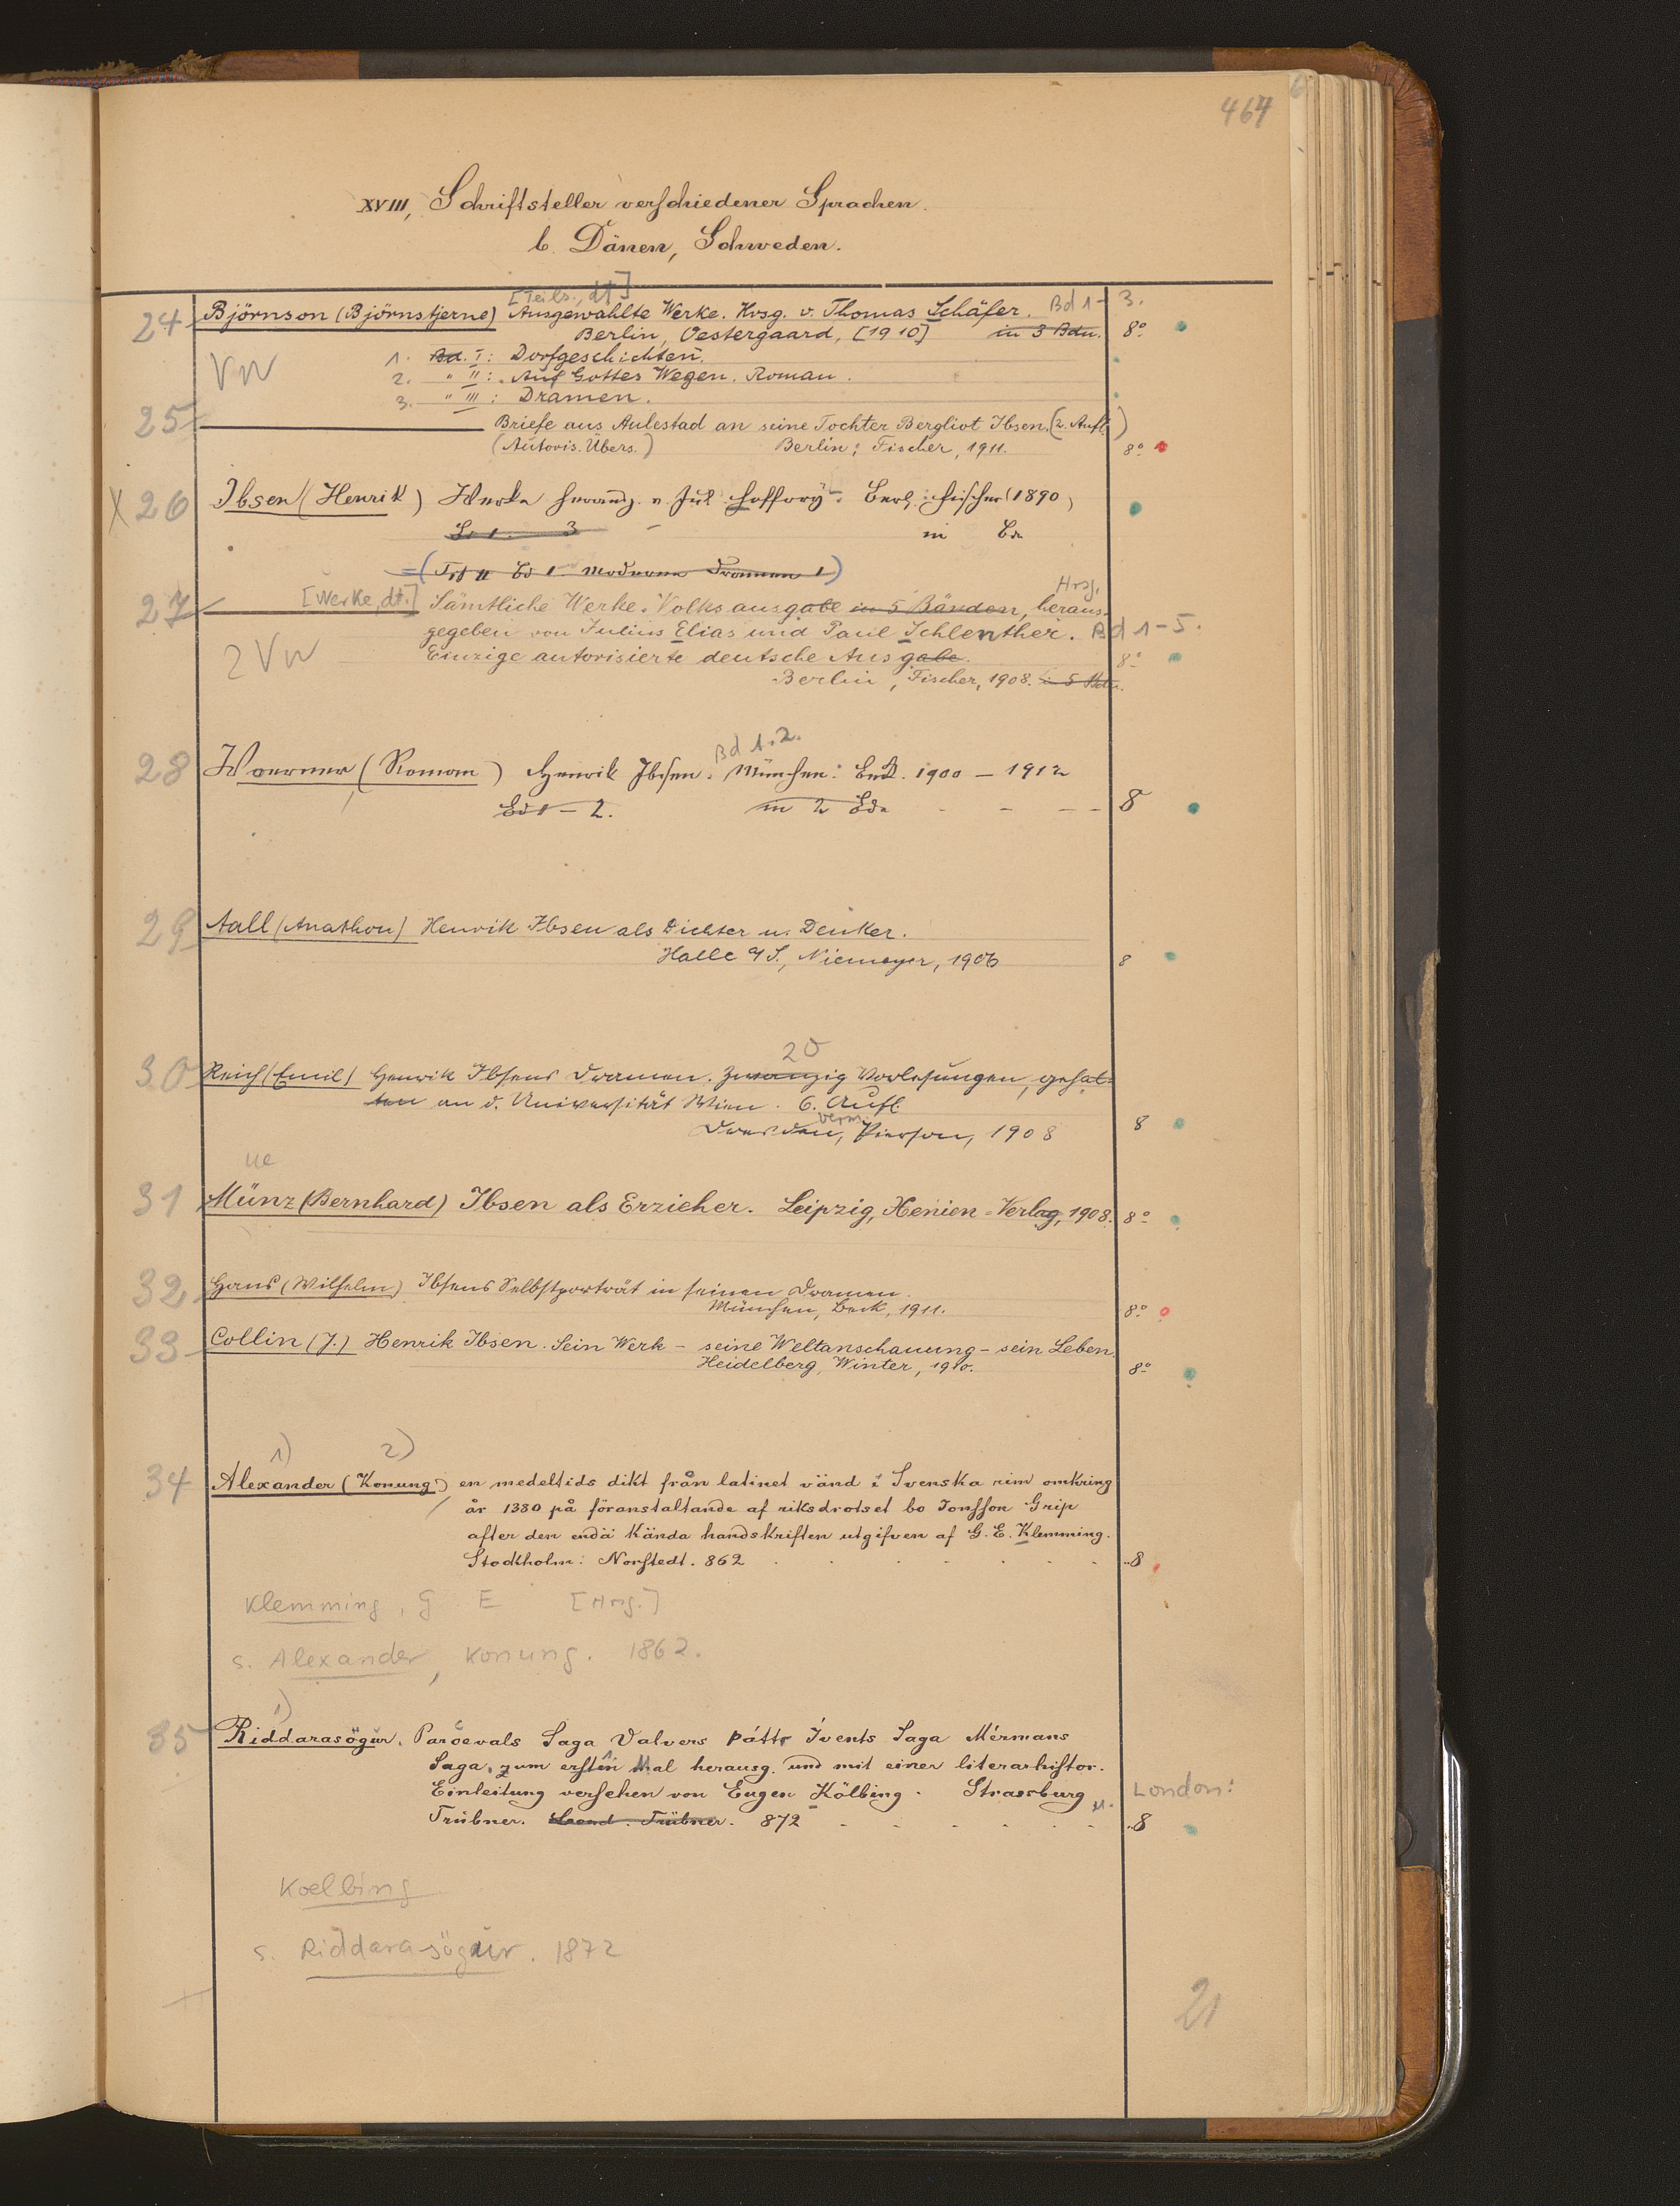 464
XVIII, Schriftsteller verschiedener Sprachen.
b. Dänen, Schweden.
[Teils., dt]
24 Björnson (Björnstjerne) Ausgewählte Werke. Hrsg. v. Thomas Schäfer. Bd 1-3.
Berlin, Oestergaard, [1910] in 3 Bdn. 8°
VW
1. Bd. I: Dorfgeschichten.
2. " II: Auf Gottes Wegen. Roman.
3. " III: Dramen.
25 Briefe aus Aulestad an seine Tochter Bergliot Ibsen. (2. Aufl.)
(Autoris. Übers.) Berlin: Fischer, 1911. 8°
X 26 Ibsen (Henrik) Werke herausg. v. Jul. Hoffory. Berl.: Fischer (1890)
Bd 1. 3 in Bde
= ( Bd 1 Moderne Dramen 1)
Hrsg.
27 [Werke, dt.] Sämtliche Werke. Volksausgabe in 5 Bänden, heraus-
gegeben von Julius Elias und Paul Schlenther. Bd 1-5.
2 VW
Einzige autorisierte deutsche Ausgabe. 8°
Berlin, Fischer, 1908. in 5 Bdn.
Bd 1.2.
28 Woerner (Roman) Henrik Ibsen. München: Beck. 1900 – 1912
Bd 1 – 2. in 2 Bde - - - - 8
29 Aall (Anathon) Henrik Ibsen als Dichter u. Denker.
Halle a/S., Niemeyer, 1906 8
20
30 Reich (Emil) Henrik Ibsens Dramen. Zwanzig Vorlesungen, gehal-
ten an d. Universität Wien. 6. Aufl.
verm.
Dresden, Pierson, 1908 8
ue
31 Münz (Bernhard) Ibsen als Erzieher. Leipzig, Xenien-Verlag, 1908. 8°
32 Hans (Wilhelm) Ibsens Selbstporträt in seinen Dramen.
München, Beck, 1911. 8°
33 Collin (J.) Henrik Ibsen. Sein Werk – seine Weltanschauung – sein Leben.
Heidelberg, Winter, 1910. 8°
1) 2)
34 Alexander (Konung) en medeltids dikt från latinet vänd i Svenska rim omkring
år 1380 på föranstaltande af riksdrotset bo Jonsson Grip
after den endä kända handskriften utgifven af G. E. Klemming.
Stockholm: Norstedt. 862 . . . . . . . 8
Klemming, G. E [Hrsg.]
s. Alexander, Konung. 1862.
1)
35 Riddarasögur. Parcevals Saga Valvers þáttr Ívents Saga Mírmans
Saga, zum ersten Mal herausg. und mit einer literarhistor.
Einleitung versehen von Eugen Kölbing. Strassburg u. London:
Trübner. Lond. Trübner. 872 - - - - - - 8
Koelbing
s. Riddarasögur. 1872
21